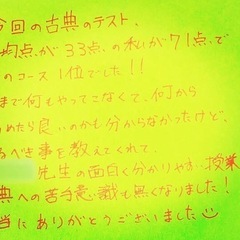 今回の古典のテスト、
均点が33点の私が71点で
のコース1位でした!!
まで何もやってこなくて、何から
めたら良いのかも分からなかったけど、
るべき事を教えてくれて、
先生の面白く分かりやすい授業
典への苦手意識も無くなりました!
当にありがとうございました